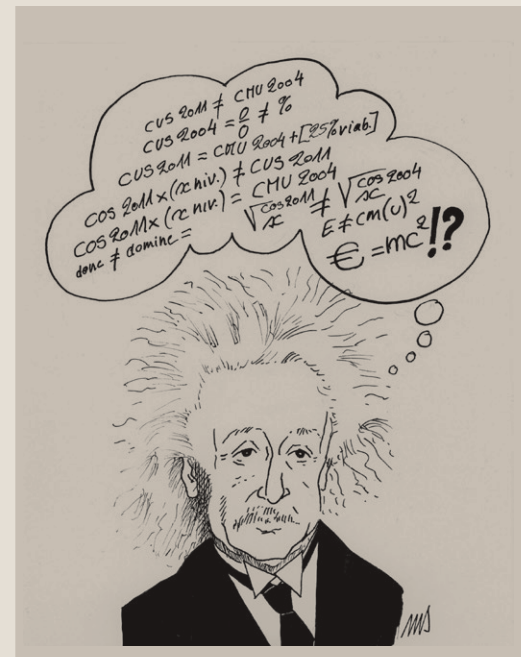 CUS 2011 ≠ CMU 2004
CUS 2004 = 0/0 ≠ %
CUS 2011 = CMU 2004 + [25% viab.]
COS 2011 x (x niv.) ≠ CUS 2011
COS 2011 x (x niv.) = CMU 2004
donc ≠ domine = √cos 2011/x ≠ √cos 2004/x
E ≠ cm(u)²
€ = mc²!?